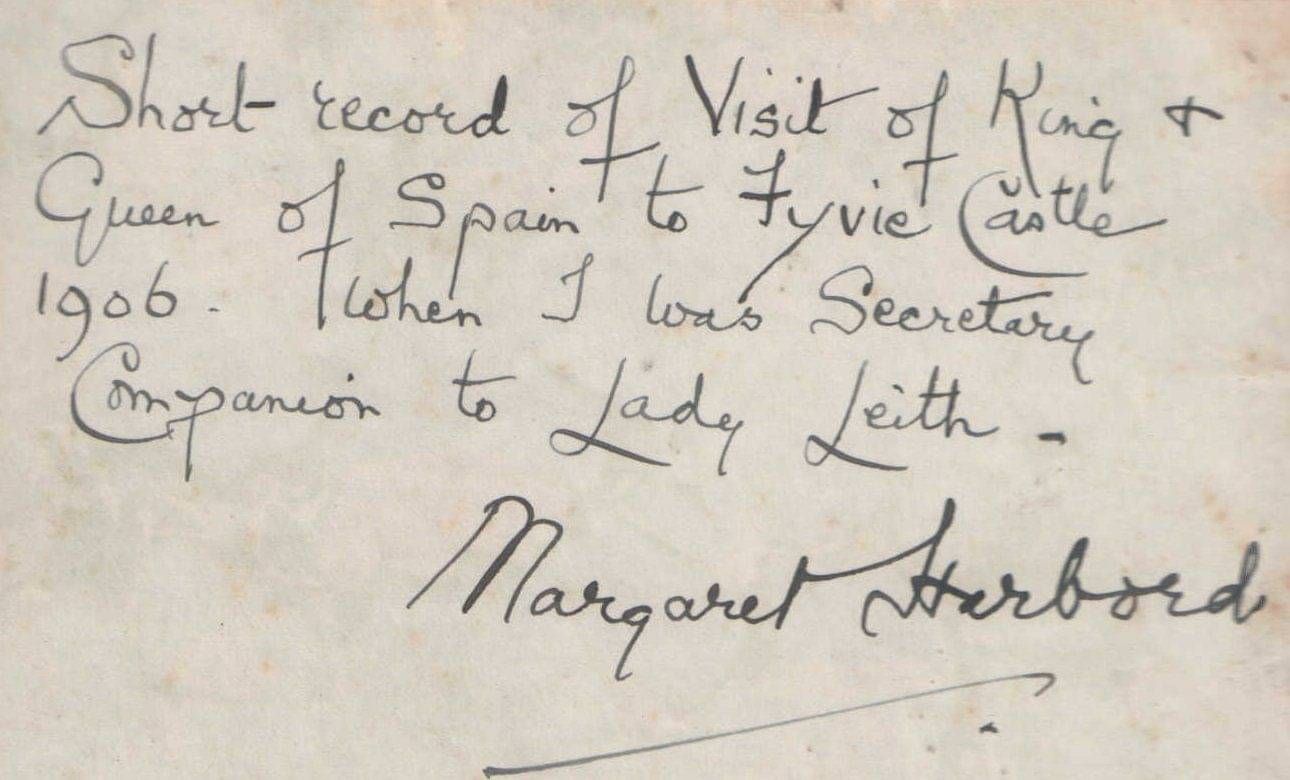 Short record of Visit of King +
Queen of Spain to Fyvie Castle
1906. When I was Secretary
Companion to Lady Leith -
Margaret Harbord